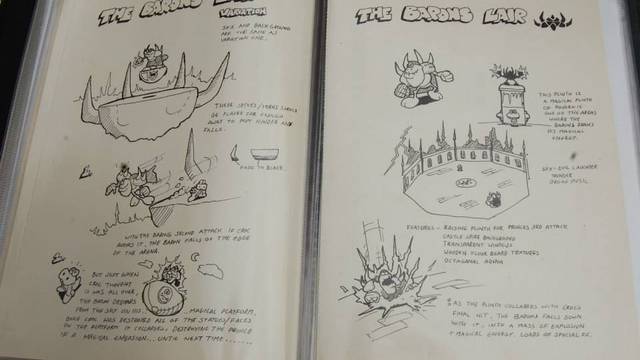 THE BARONS
VARIATION
SKY AND BACKGROUND
ARE THE SAME AS
VARIATION ONE.
THESE SPIKES/HORNS
OR PLACED FAR ENOUGH
AWAY TO NOT HINDER ANY
FALLS.
FADE TO BLACK
WITH THE BARONS SECOND ATTACK. IF CROC
AVOIDS IT, THE BARON FALLS OFF THE EDGE
OF THE ARENA.
BUT JUST WHEN
CROC THOUGHT
IT WAS ALL OVER,
THE BARON DROPPES
FROM THE SKY ON HIS ....... MAGICAL PLATFORM,
ONCE CROC HAS DESTROYED ALL OF THE STATUES/FACES
ON THE PLATFORM IT COLLAPSES, DESTROYING THE PRINCE
IN A MAGICAL EXPLOSION... UNTIL NEXT TIME........
THE BARONS LAIR
THIS PLINTH IS
A MAGICAL PLINTH
OF POWER. IN
ONE OF THE AREAS
WHERE THE
BARONS DRAWS
HIS MAGICAL
ENERGY.
SFX - EVIL LAUGHTER
THUNDER
ORGAN MUSIC
FEATURES - RAISING PLINTH FOR PRINCES 3RD ATTACK
CASTLE SPIRE BACKGROUND
TRANSPARENT WINDOWS
WOODEN FLOOR BOARD TEXTURES
OCTAGONAL ARENA
AS THE PLINTH COLLAPSES WITH CROCS
FINAL HIT, THE BARON FALLS DOWN
WITH IT, INTO A MASS OF EXPLOSION
+ MAGICAL ENERGY. LOADS OF SPECIAL FX.